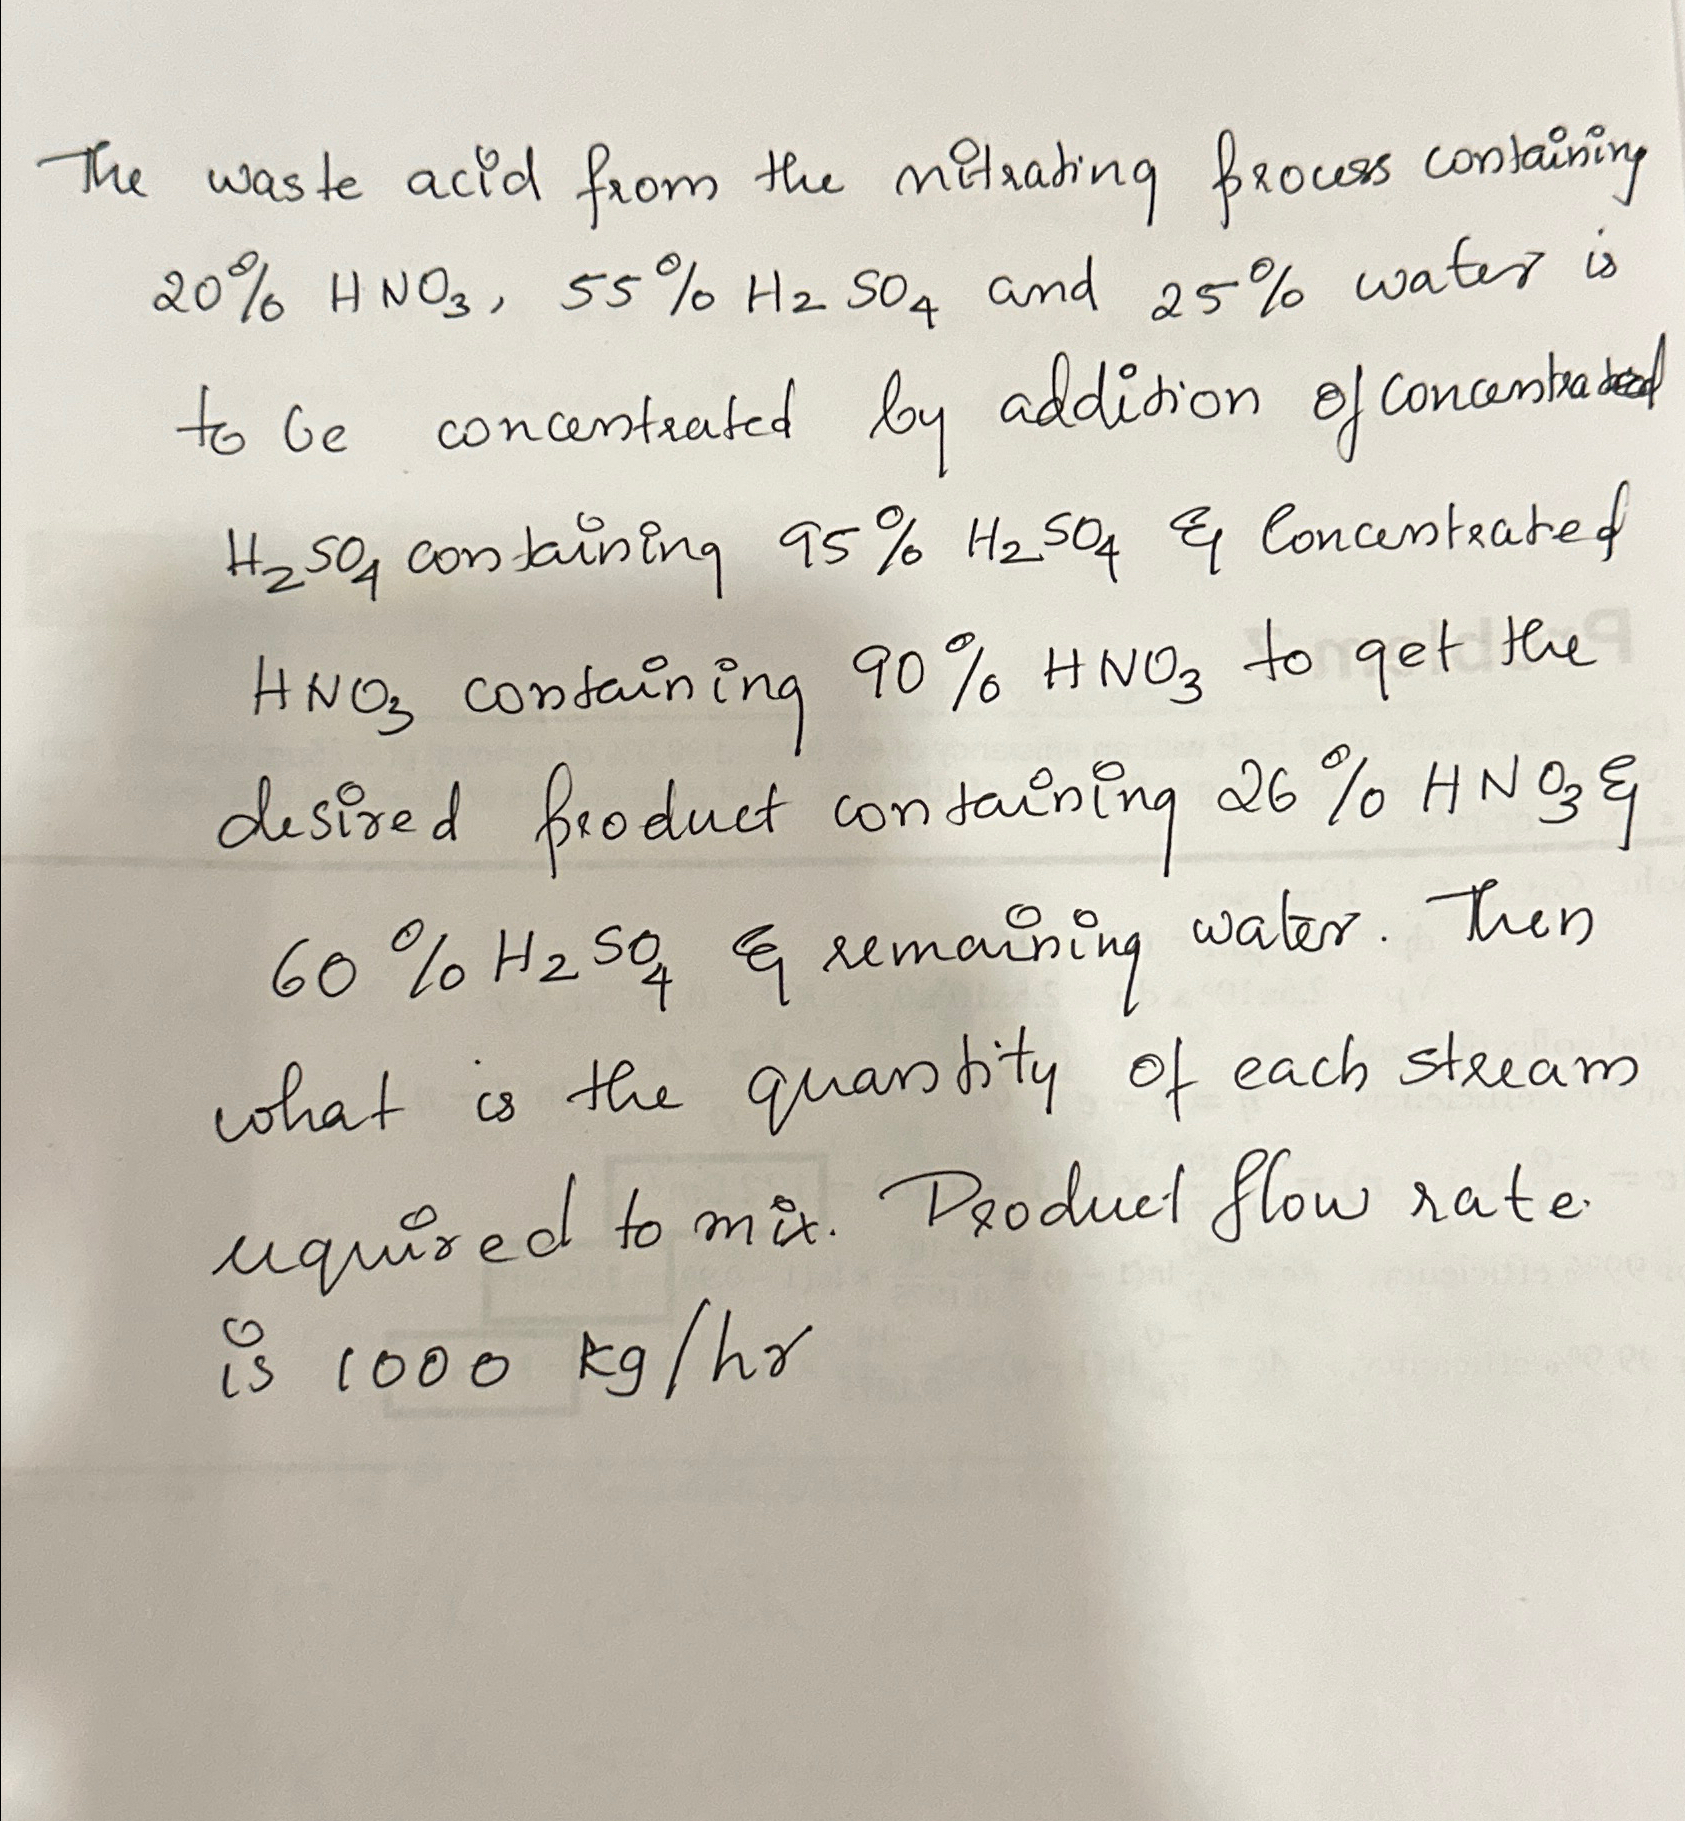 The waste acid from the nitrating process containing
20% HNO3, 55% H2SO4 and 25% water is
to be concentrated by addition of concentrated
H2SO4 containing 95% H2SO4 & Concentrated
HNO3 containing 90% HNO3 to get the
desired product containing 26% HNO3 &
60% H2SO4 & remaining water. Then
what is the quantity of each stream
required to mix. Product flow rate.
is 1000 kg/hr